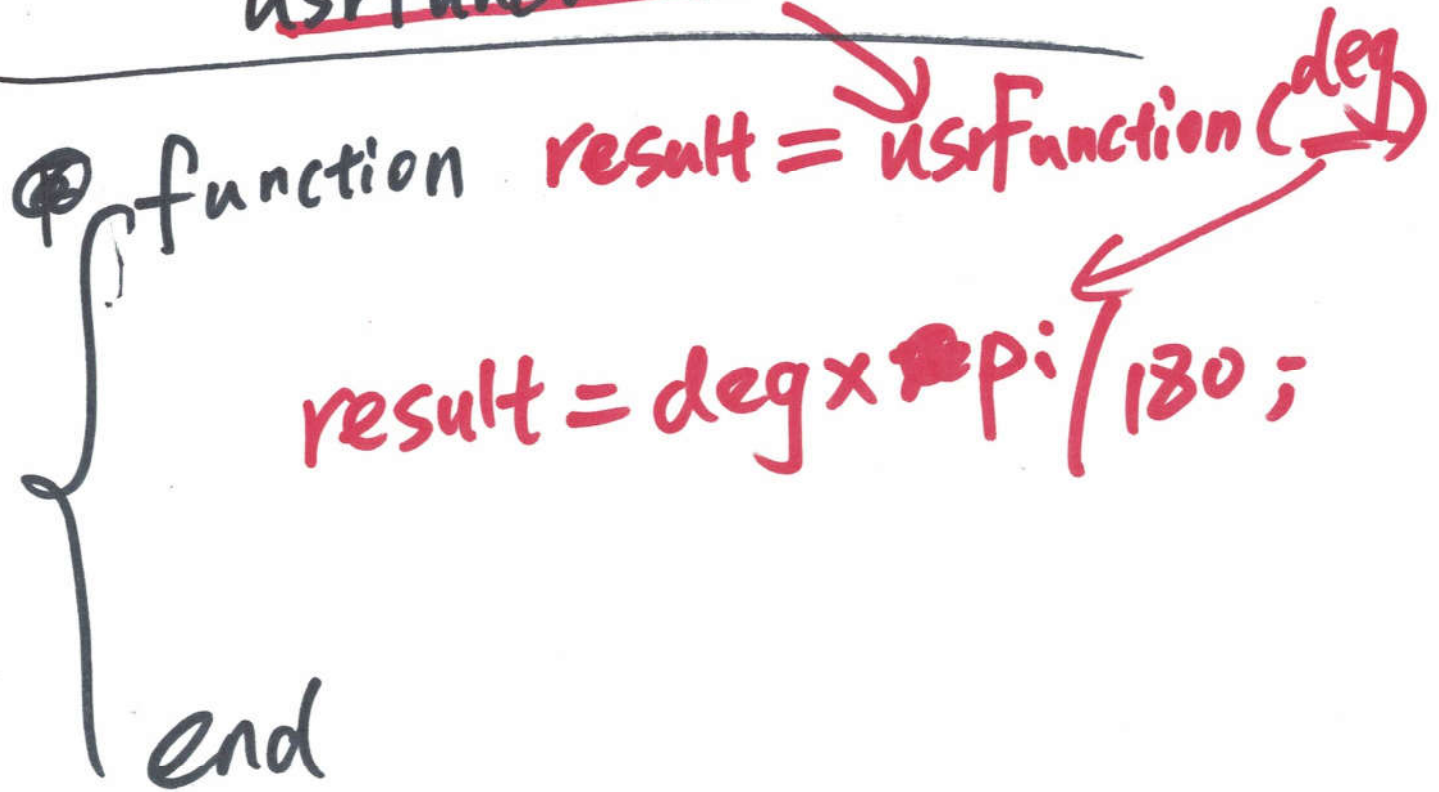 usrfunc
function result = usrfunction (deg)
result = deg x pi / 180 ;
end